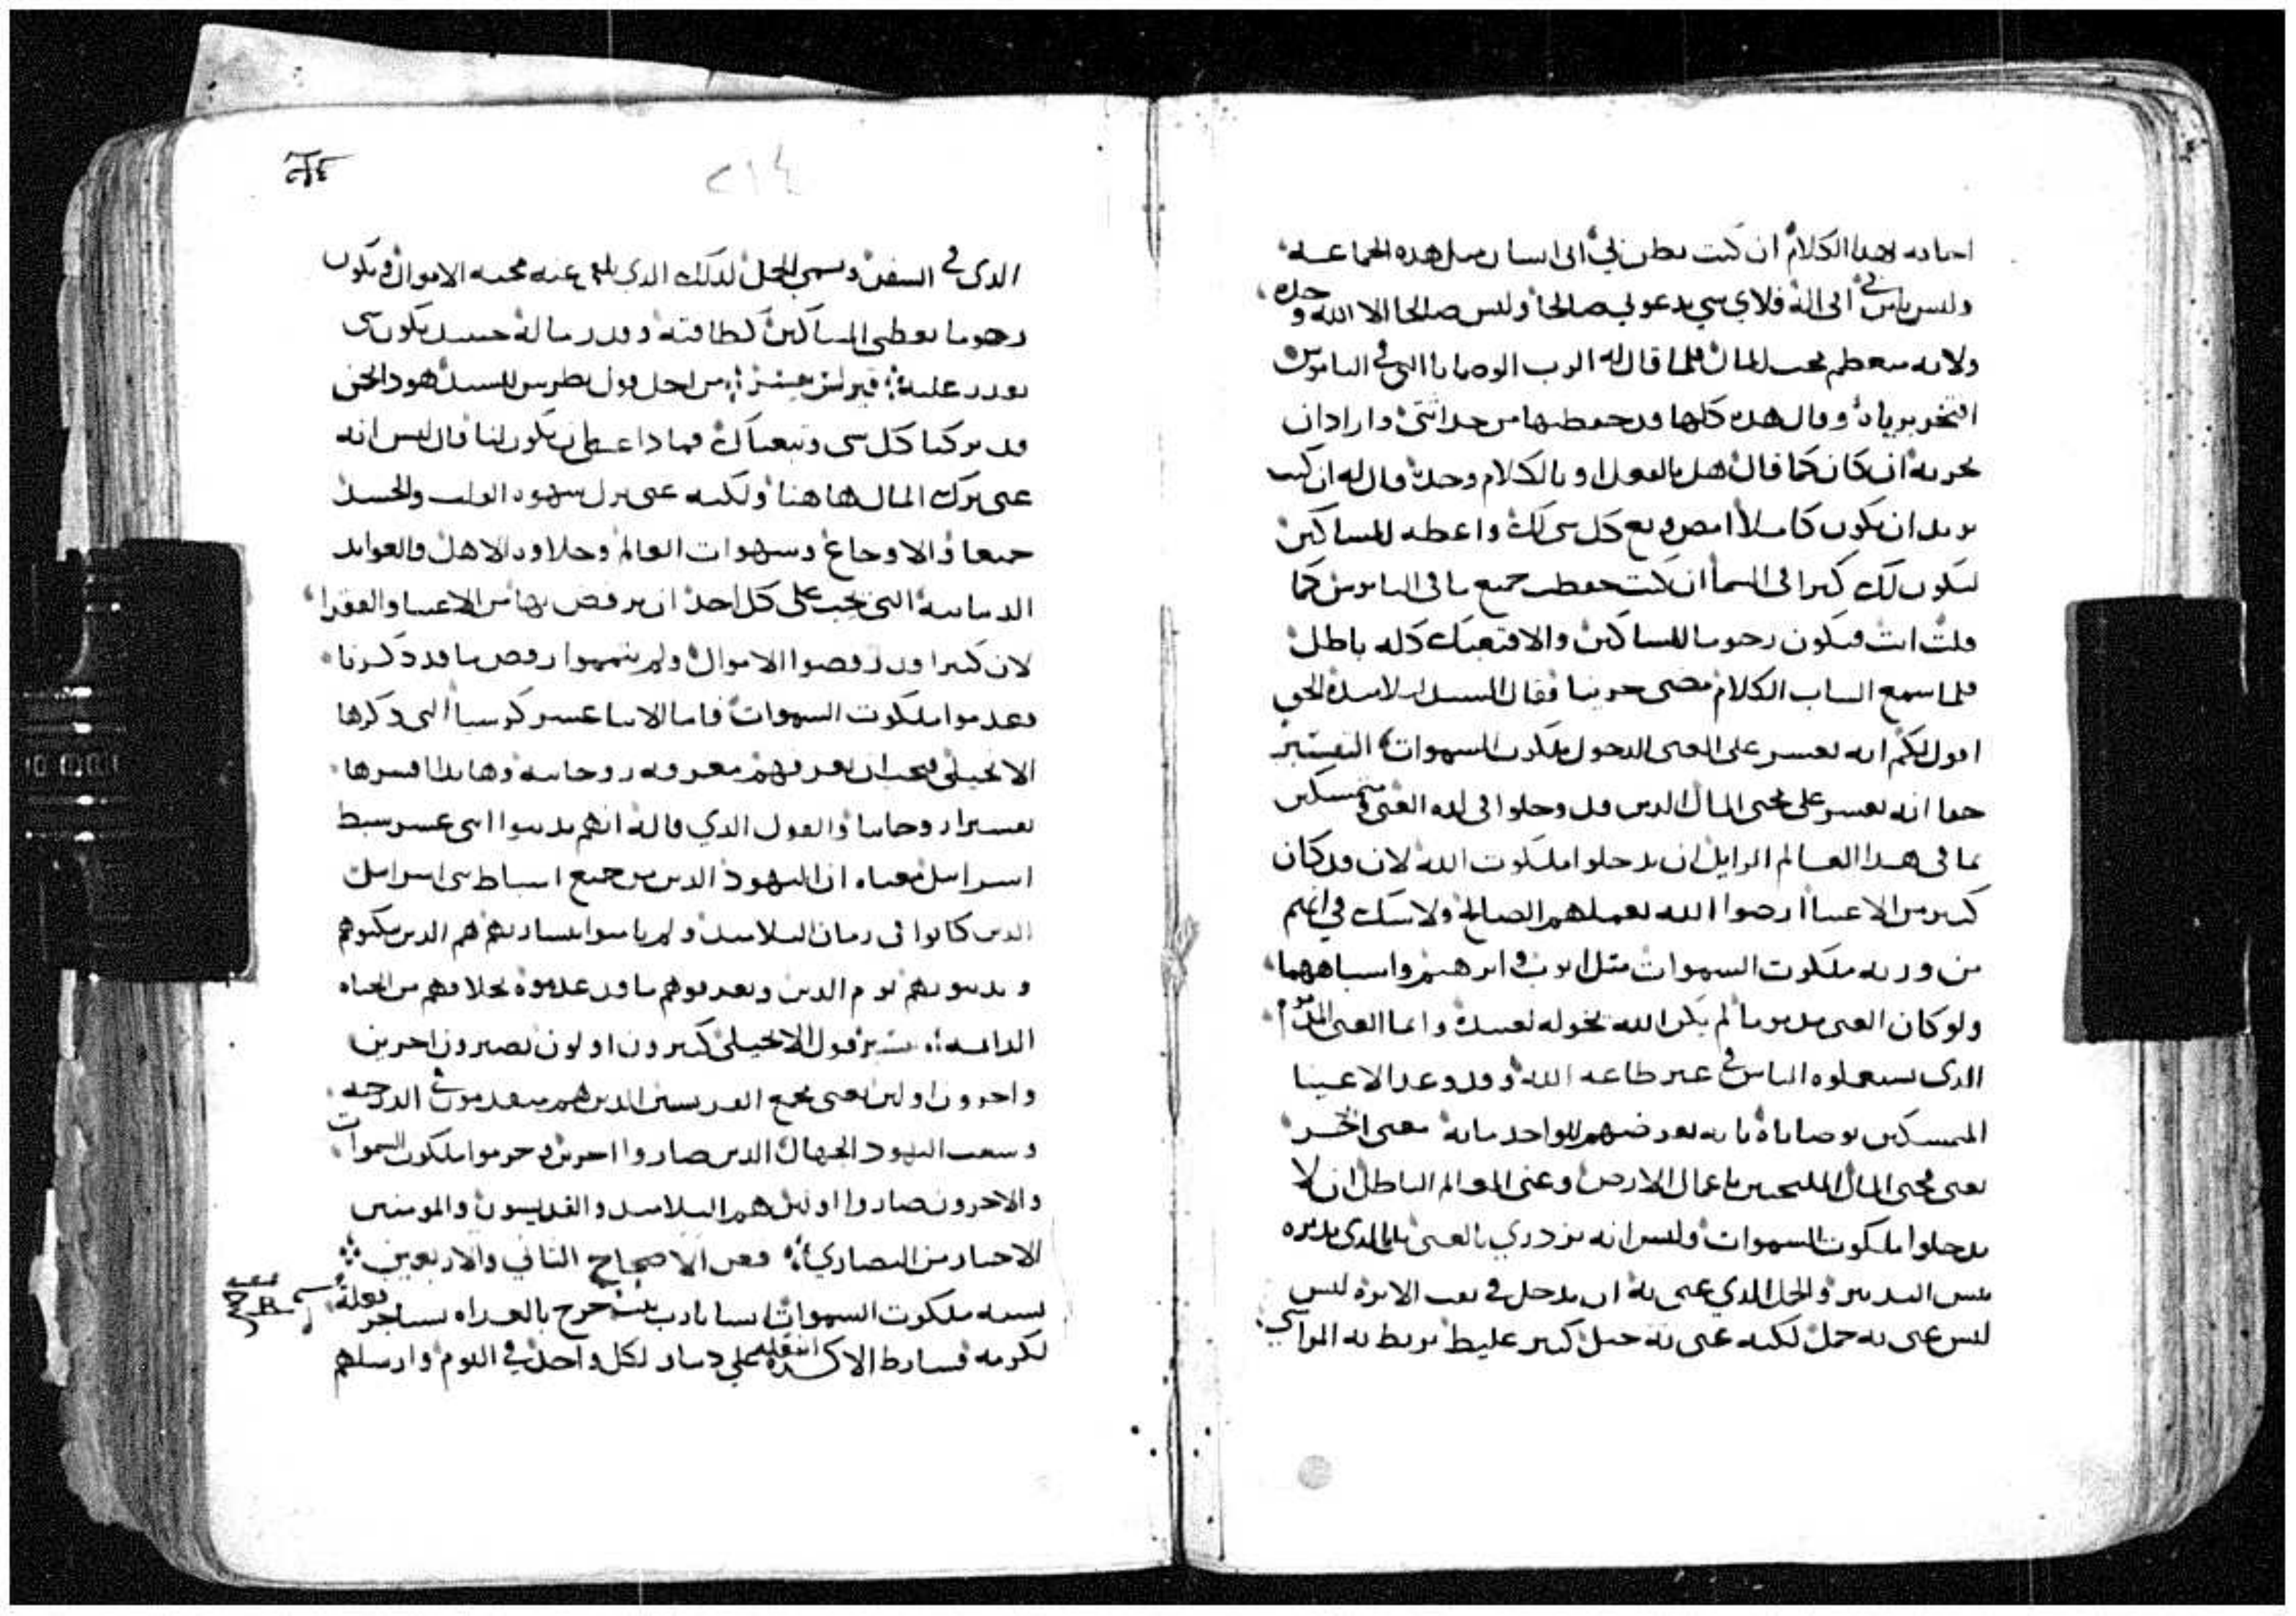 اجابه بهذا الكلام ان كنت تظن بي اني انسان مثل هذه الجماعه
وليس باس في اني اله فلاي شي تدعوني صالحا وليس صالحا الا الله وحده
ولانه متعظم بحب المال فلما قال له الرب الوصايا التي في الناموس
افتخر برياه وقال هذه كلها قد حفظتها من حداثتي واراد ان
يجربه ان كان كما قال هل بالفعل او بالكلام وحده قال له ان كنت
تريد ان تكون كاملا امض وبع كل شي لك واعطه للمساكين
ليكون لك كنزا في السما ان كنت حفظت جميع ما في الناموس كما
قلت انت فتكون رحوما للمساكين والا فتعبك كله باطل
فلما سمع الشاب الكلام مضى حزينا فقال السيد لتلاميذه الحق
اقول لكم انه يعسر على الغني الدخول ملكوت السموات التفسير
حقا انه يعسر على محبي المال الذين قد دخلوا في لذه الغنى متمسكين
بما في هذا العالم الزايل ان يدخلوا ملكوت الله لان قد كان
كثير من الاغنيا ارضوا الله بعملهم الصالح ولا شك في انهم
من ورثه ملكوت السموات مثل ايوب وابرهيم واشباههما
ولو كان الغنى مذموما لم يكن الله يخوله لعبيده وانما الغنى المذموم
الذي يستعملوه الناس في غير طاعه الله وقد وعد الاغنيا
المتمسكين بوصاياه بانه يعوضهم للواحد مايه معنى اخر
يعني محبي المال الملتحمين باعمال الارض وغنى العالم الباطل ان لا
يدخلوا ملكوت السموات وليس انه يزدري بالغنى بل بالذي يدبره
بيس التدبير والجمل الذي عنى به ان يدخل في ثقب الابره ليس
ليس عنى به جمل لكنه عنى به حبل كبير غليظ يربط به المراسي
٢١٤
الذي في السفن ويسمى الجمل لذلك الذي يلقي عنه محبه الاموال ويكون
رحوما يعطي المساكين كطاقته وقدر ماله حينيذ يكون شي
يقدر عليه من اجل قول بطرس للسيد هوذا نحن
قد تركنا كل شي وتبعناك فماذا عسى ان يكون لنا قال ليس انه
عنى ترك المال هاهنا ولكنه عنى ترك شهوه القلب والجسد
جميعا والاوجاع وشهوات العالم وحلاوه الاهل والعوايد
الدنيانيه التي يجب على كل احد ان يرفض بها من الاغنيا والفقرا
لان كثيرا قد رفضوا الاموال ولم يتمموا رفض ما قد ذكرنا
وعدموا ملكوت السموات فاما الاثنا عشر كرسيا التي ذكرها
الانجيلي فيجب ان نعرفهم معرفه روحانيه وهانذا افسرها
تفسيرا روحانيا والقول الذي قاله انهم يدينوا اثني عشر سبط
اسراييل معناه ان اليهود الذين من جميع اسباط بني اسراييل
الذين كانوا في زمان التلاميذ ولم يامنوا ببشارتهم هم الذين يبكتوهم
ويدينوهم يوم الدين ويعرفوهم ما قد عدموه بخلافهم من الحياه
الدايمه قول الانجيلي كثيرون اولون يصيرون اخرين
واخرون اولين يعني مجمع الفريسين الذين هم متقدمون في الدرجه
وشعب اليهود الجهال الذين صاروا اخرين وحرموا ملكوت السموات
والاخرون صاروا اولين هم التلاميذ والقديسون والمومنين
الاخيار من النصاري فص الاصحاح الثاني والاربعين
تشبه ملكوت السموات انسانا رب بيت خرج بالغداه يستاجر فعله
لكرمه فشارط الاكره علي دينار لكل واحد في اليوم وارسلهم